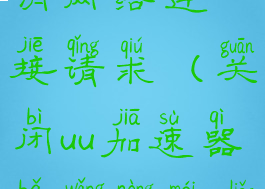 消网络连
jiē qǐng qiú guān
接请求（关
bì jiā sù qì
闭uu加速器